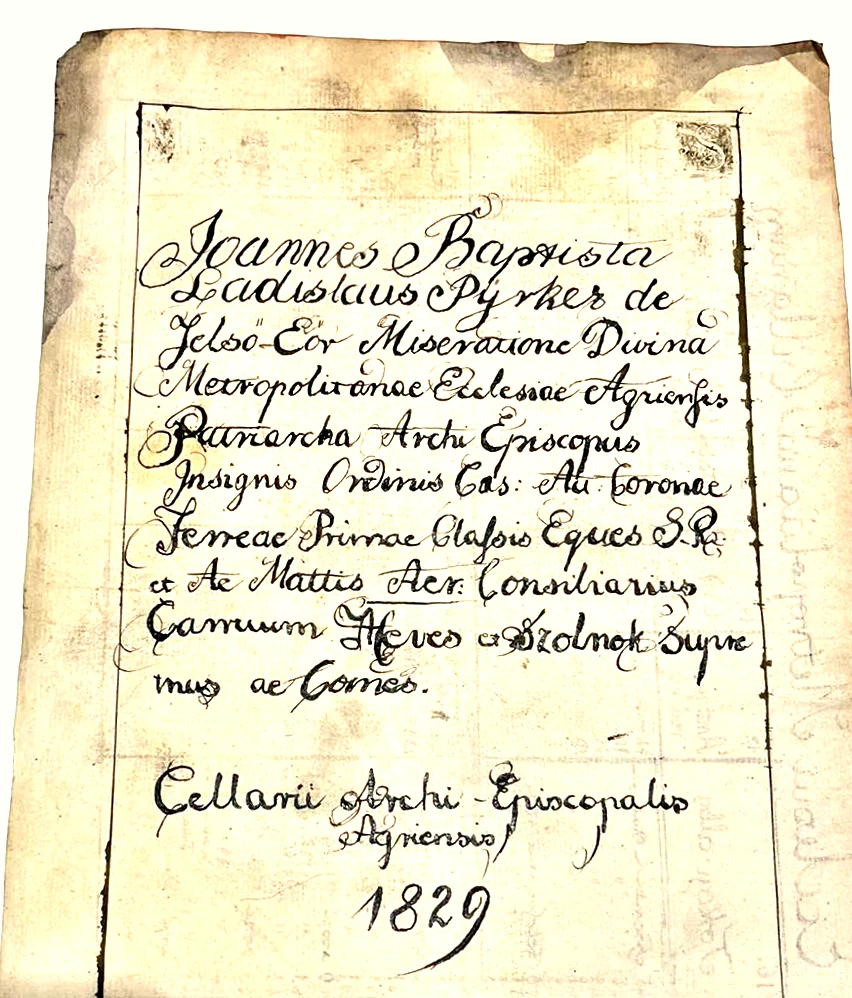 Joannes Baptista
Ladislaus Pyrker de
Felsö-Eör Miseratione Divina
Metropolitanae Ecclesiae Agriensis
Patriarcha Archi Episcopus
Insignis Ordinis Cas: Au: Coronae
Ferreae Primae Classis Eques S. R:
et Ae Mattis Aer: Consiliarius
Heves et Szolnok Supre
mus ac Comes.
Cellarii Archi-Episcopalis
Agriensis
1829